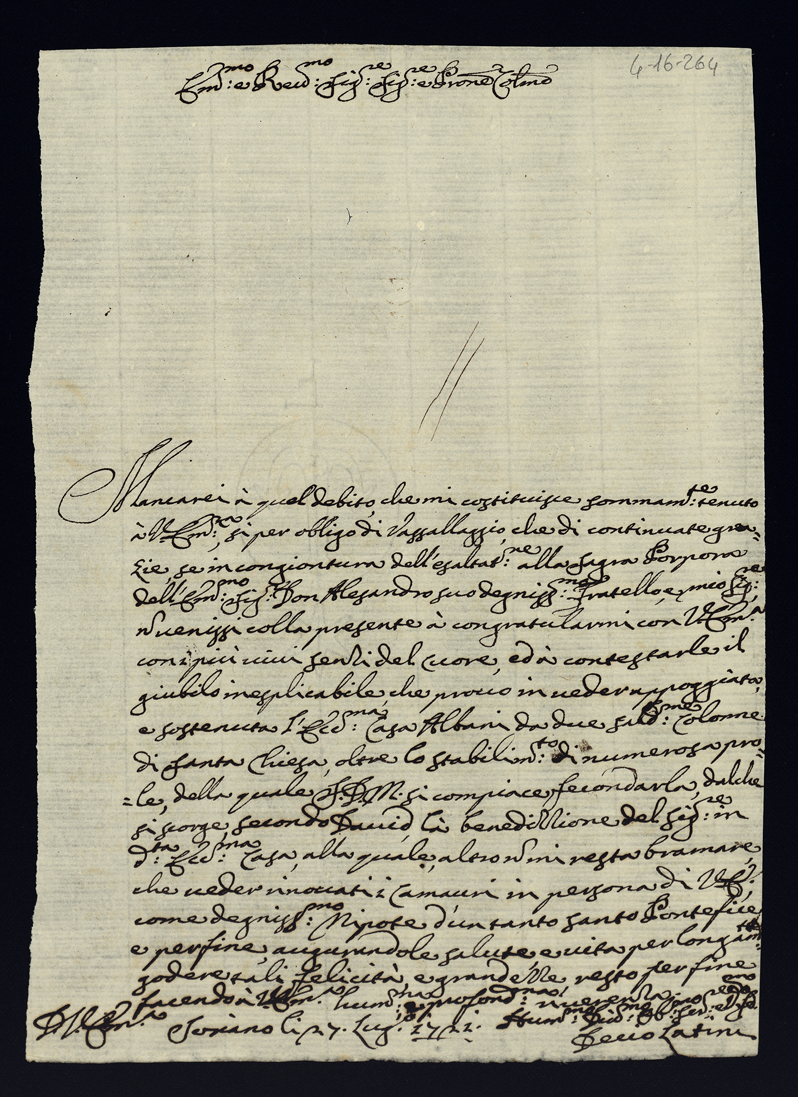 4-16-264
Em:mo e Reu:mo Sig:re Sig:re e Prone Colmo
Mancarei à quel debito, che mi costituisce sommam:te tenuto
à V. Em:za, si per obligo di Vassallaggio, che di continuate gra=
zie se in congiontura dell'esaltat:ne alla Sagra Porpora
dell'Em:mo Sig:r Don Alesandro suo degniss:mo Fratello, e mio Sig:re
n̄ uenissi colla presente à congratularmi con V. Em:a
con i più uiui sensi del Cuore, ed à contestarle il
giubilo inesplicabile, che prouo in ueder appoggiata,
e sostenuta l'Ecc:ma Casa Albani da due Colonne
di Santa Chiesa, oltre lo stabilim:to di numerosa pro=
=le, della quale S. D. M. si compiace fecondarla, dalche
si scorge, secondo Dauid, la benedizzione del Sig:re in
d:ta Ecc:ma Casa, alla quale, altro n̄ mi resta bramare,
che ueder inouati i Camauri in persona di V. E:
come degniss:mo Nipote d'un tanto Santo Pontefice,
e per fine, augurandole salute e uita per long:
godere tali felicità, e grandezze, resto per fine
facendo à V. Em:a hum:ma e profond:ma riuerenza
D. V. Em:a
Soriano li 27. Lug: 1721.
Hum:mo Ob:mo Ser:re
Latini